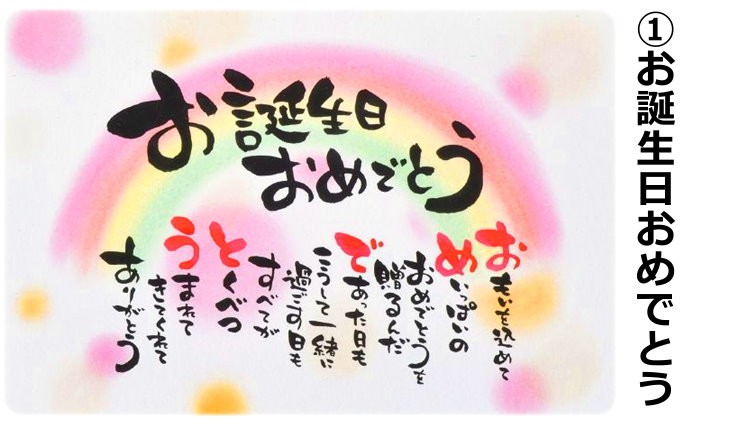 ①お誕生日おめでとう
お誕生日
おめでとう
おもいを込めて
めいっぱいの
おめでとうを
贈るんだ
であった日も
こうして一緒に
過ごす日も
すべてが
とくべつ
うまれて
きてくれて
ありがとう